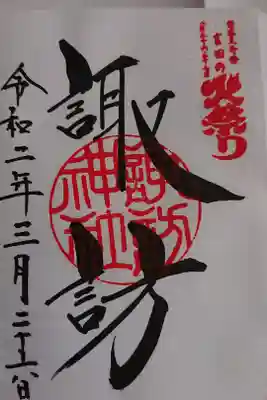 吉田の
火祭り
諏訪
諏訪
神社
令和二年三月二十六日